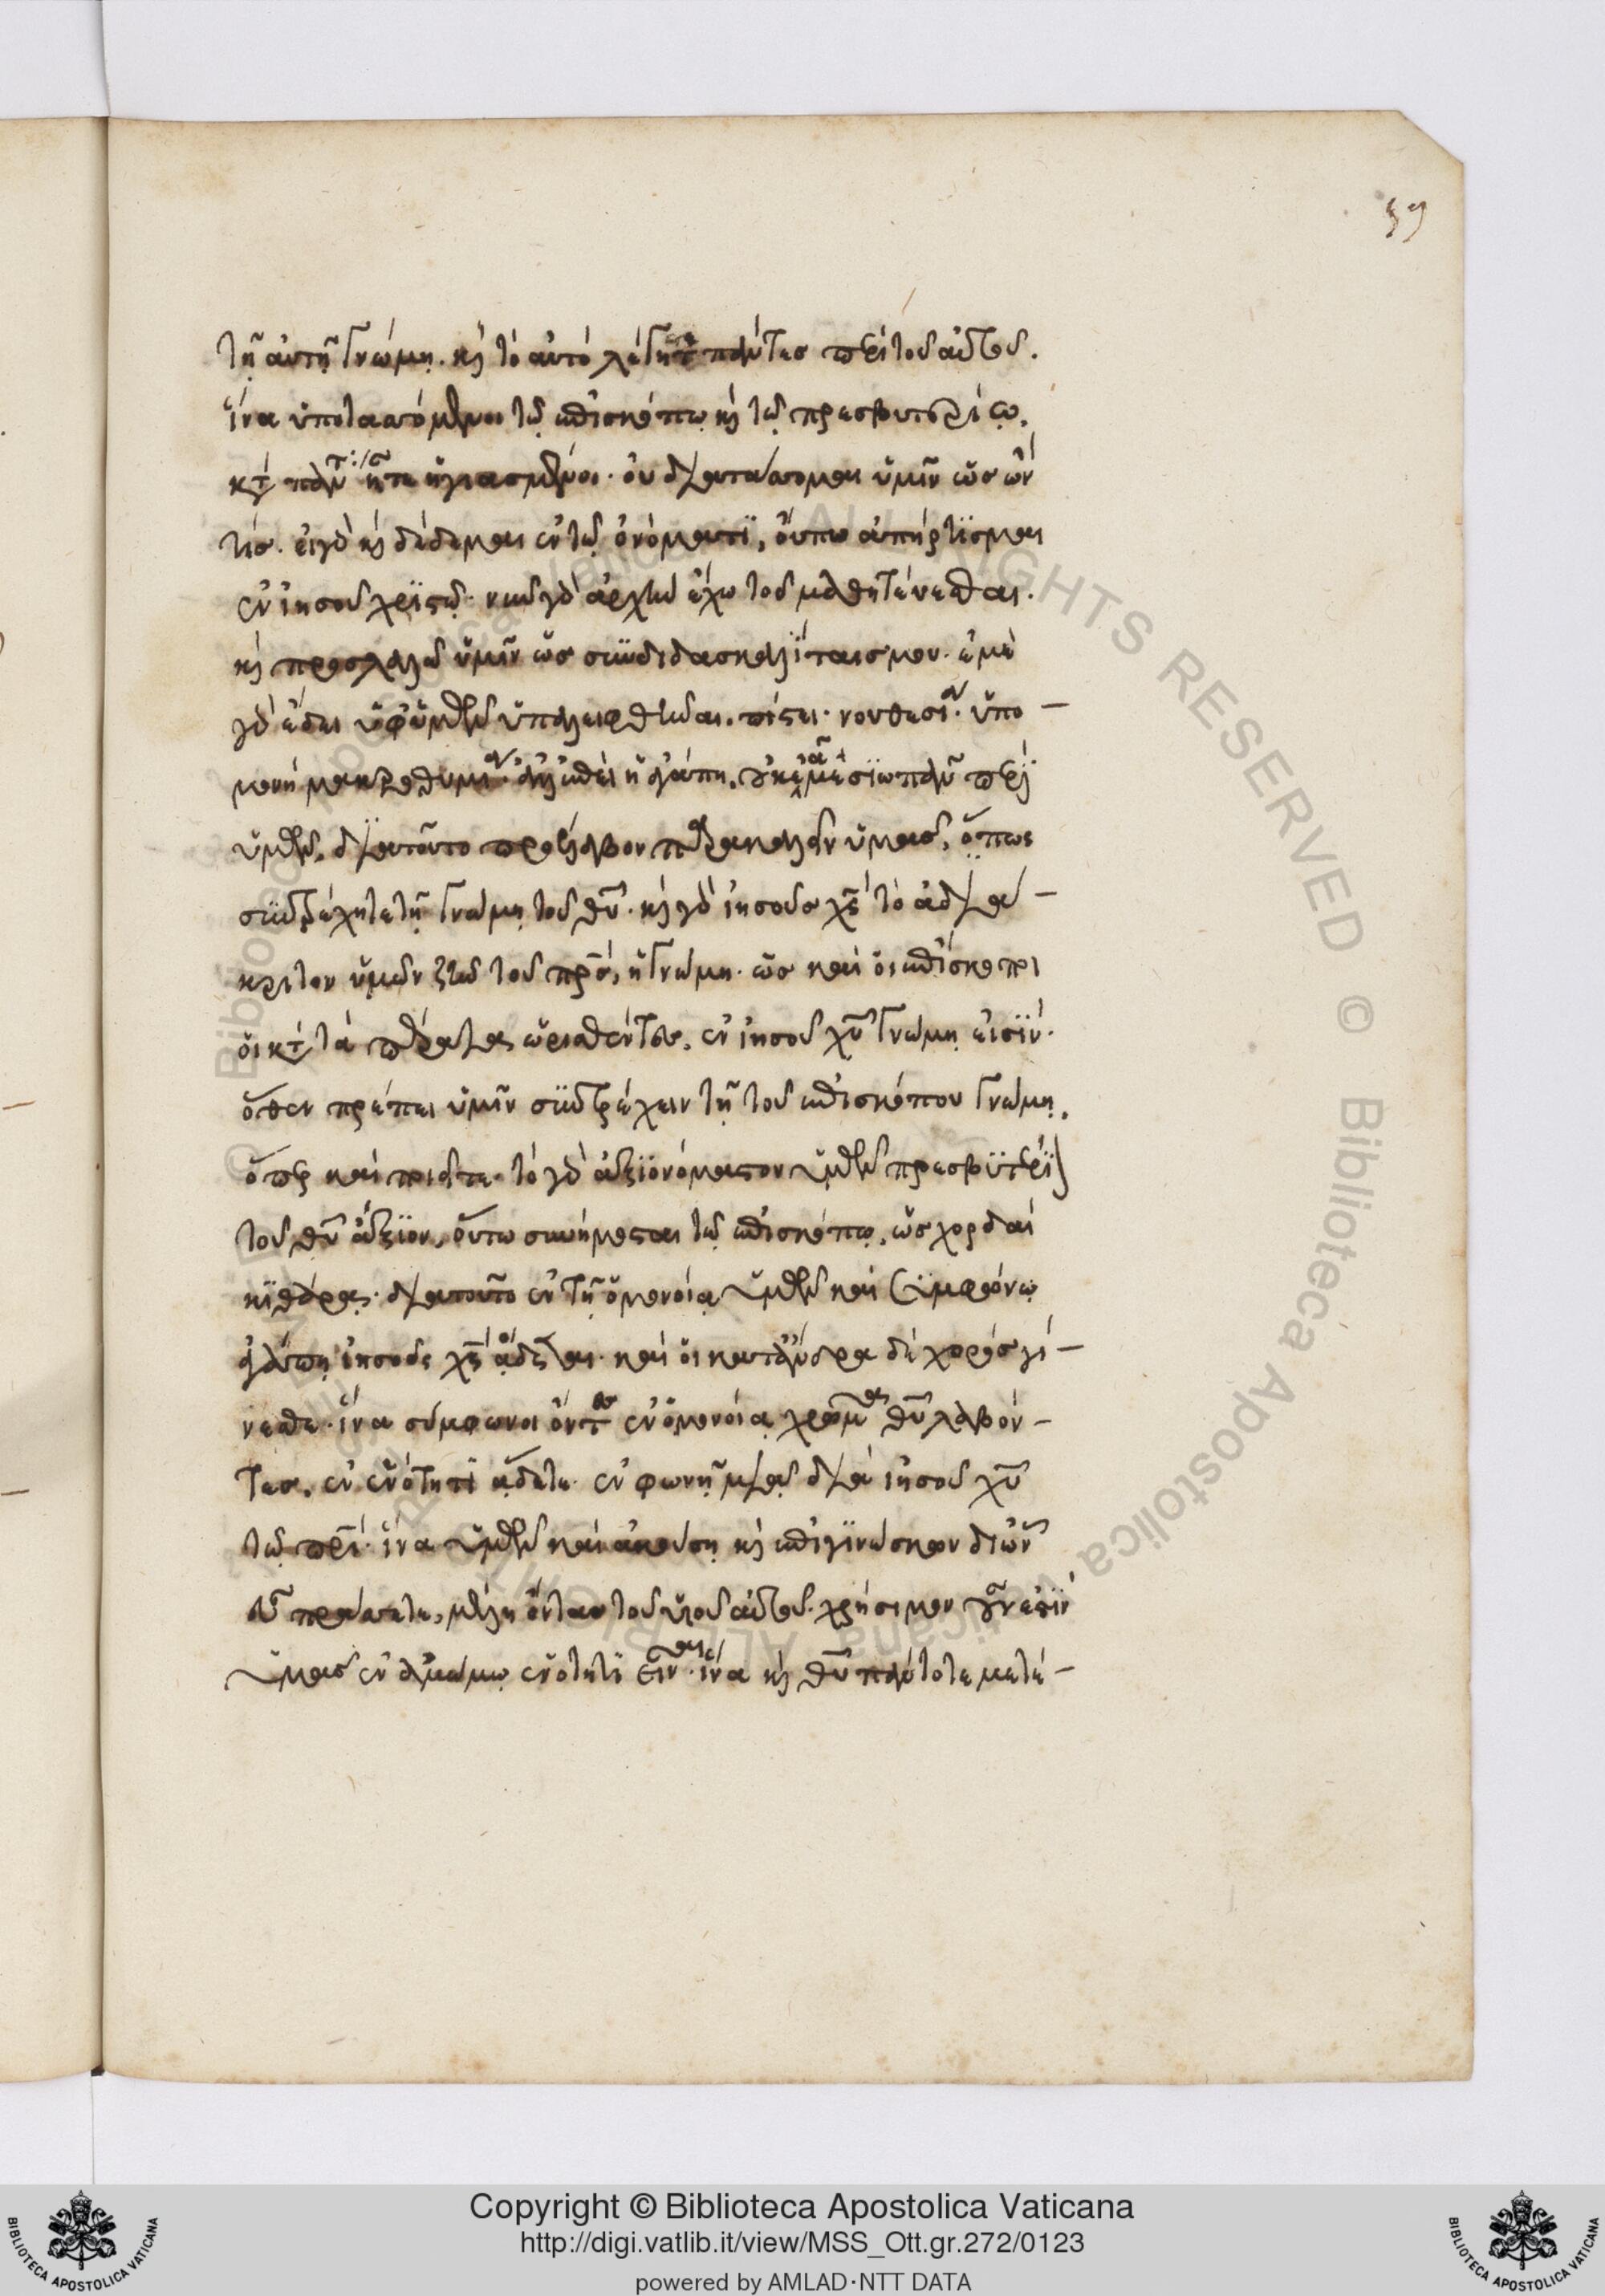 59
τῆ αὐτῆ γνώμη. κὶ τὸ αὐτὸ λέγητε πάντες περὶ τοῦ αὐτοῦ.
ἵνα ὑποτασσόμενοι τῶ ἐπισκόπω κὶ τῶ πρεσβυτερίω,
κατὰ πάντα ἦτε ἡγιασμένοι. οὐ διατάσσομαι ὑμῖν ὡς ὤν
τίς. εἰ γὰρ κὶ δέδεμαι ἐν τῶ ὀνόματϊ, οὔπω ἀπήρτϊσμαι
ἐν ἰησοῦ χριστῶ. νῦν γὰρ ἀρχὴν ἔχω τοῦ μαθητέυεσθαι.
κὶ προσλαλῶ ὑμῖν ὡς συνδιδασκαλίταις μου. ἐμὲ
γὰρ ἔδει ὑφ' ὑμῶν ὑπαλειφθῆναι. πίστει. νουθεσία. ὑπο-
μονῆ μακροθυμία. ἀλλ' ἐπεὶ ἡ ἀγάπη. οὐκ ἐᾶ με σϊωπᾶν περὶ
ὑμῶν, διὰ τοῦτο προέλαβον παρακαλεῖν ὑμᾶς, ὅπως
συντρέχητε τῆ γνώμη τοῦ θῦ. κὶ γὰρ ἰησοῦς χς τὸ ἀδιά-
κριτον ὑμῶν ζῆν τοῦ πρς, ἡ γνώμη. ὡς καὶ ὁι ἐπίσκοποι
ὁι κατὰ τὰ πέρατα ὁρισθέντες, ἐν ἰησοῦ χῦ γνώμη εἰσϊν.
ὅθεν πρέπει ὑμῖν συντρέχειν τῆ τοῦ ἐπισκόπου γνώμη.
ὅπερ καὶ ποιεῖτε. τὸ γὰρ ἀξϊονόμαστον ὑμῶν πρεσβϋτέριον
τοῦ θῦ ἄξϊον, οὕτω συνήρμοσται τῶ ἐπισκόπω, ὡς χορδαὶ
κϊθάρα. διὰ τοῦτο ἐν τῆ ὁμονοία ὑμῶν καὶ συμφώνω
ἀγάπη ἰησοῦς χς ἄδεται. καὶ ὁι κατ' ἄνδρα δὲ χορὸς γί-
νεσθε. ἵνα σύμφωνοι ὄντες ἐν ὁμονοία χρῶμα θῦ λαβόν-
τες. ἐν ἑνότητϊ ἄδετε. ἐν φωνῆ μιᾶ διὰ ἰησοῦ χῦ
τῶ πρι. ἵνα ὑμῶν καὶ ἀκούση κὶ ἐπιγϊνώσκων δι' ὧν
εὖ πράσσετε, μέλη ὄντας τοῦ υἱοῦ αὐτοῦ. χρήσιμον οὖν ἐστϊν
ὑμᾶς ἐν ἀμώμω ἑνότητϊ εἶναι. ἵνα κὶ θῦ πάντοτε μετέ-
Copyright © Biblioteca Apostolica Vaticana
http://digi.vatlib.it/view/MSS_Ott.gr.272/0123
powered by AMLAD·NTT DATA